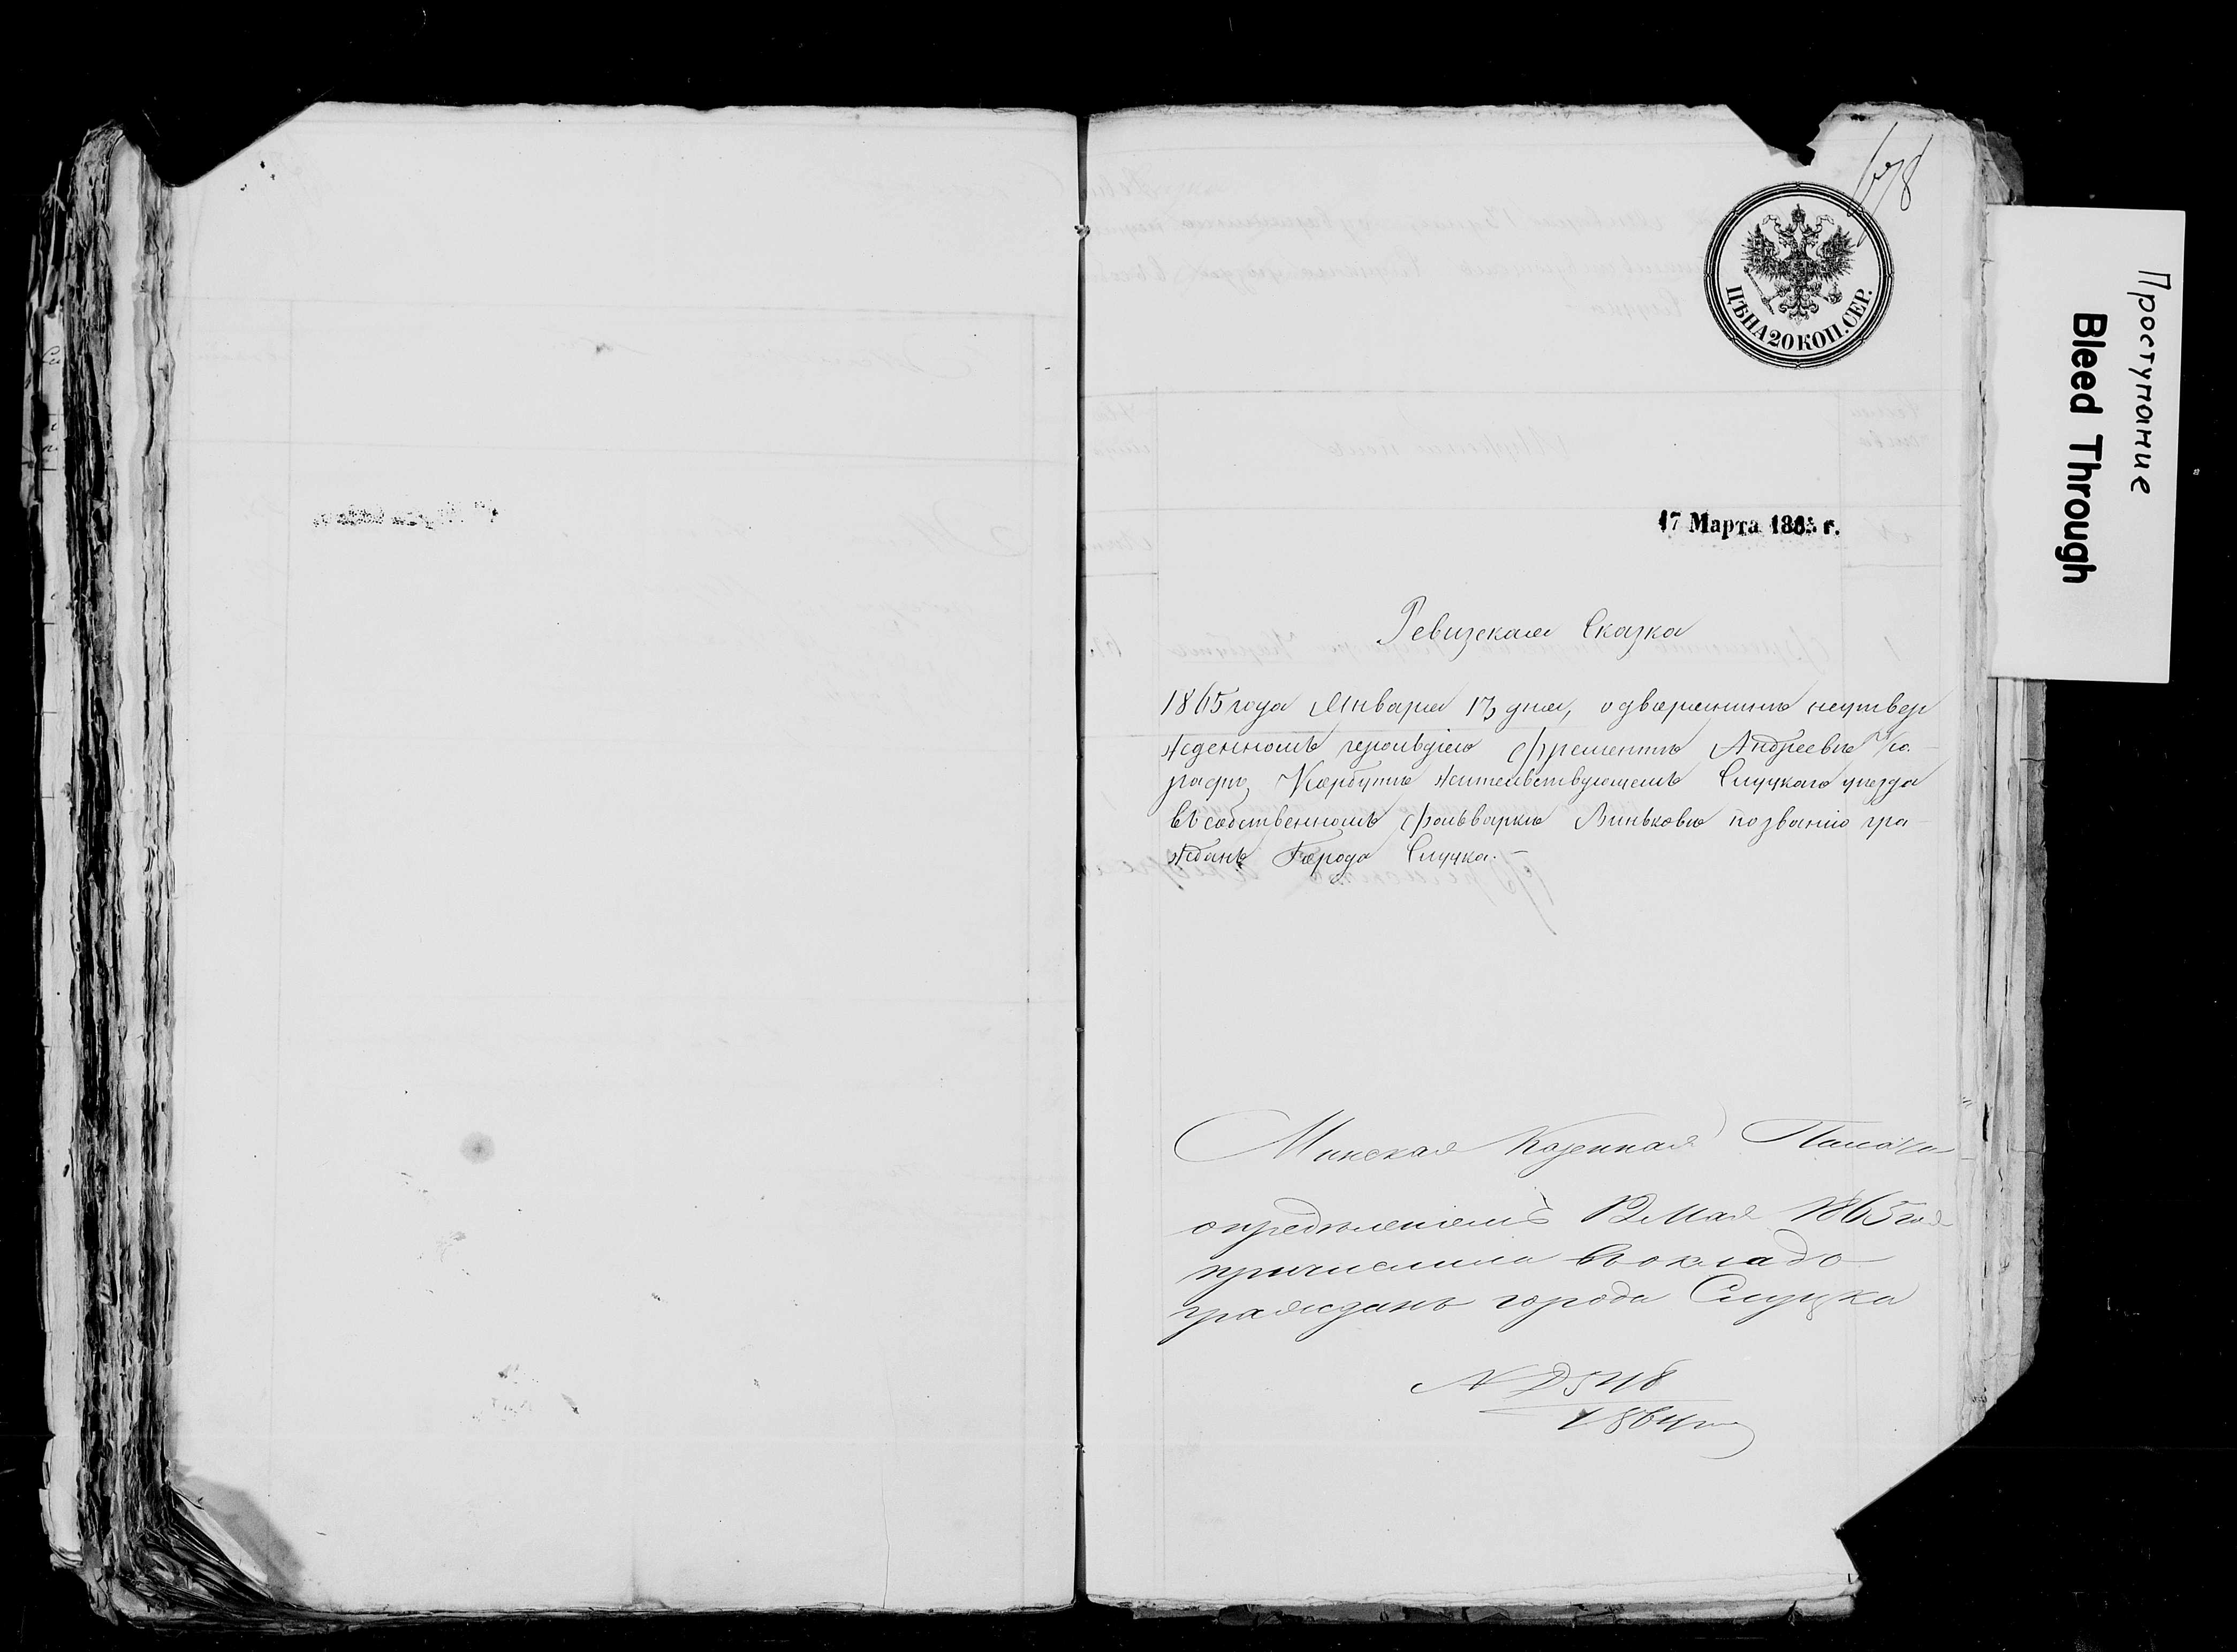 ЦѢНА 20 КОП. СЕР.
Проступание
Bleed Through
17 Марта 1865 г.
Ревизская Сказка
1865 года Января 13 дня, о дворянинѣ неутвер
жденномъ герольдіею Андреевѣ
Корбутѣ жительствующемъ Слуцкаго уѣзда
въ собственномъ фольваркѣ Виньковѣ по званію гра
жданъ Города Слуцка.
Минская Казенная Палата
опредѣленіемъ 12 Мая 1865 года
причислила въ окладъ
гражданъ города Слуцка
N 2548
1864